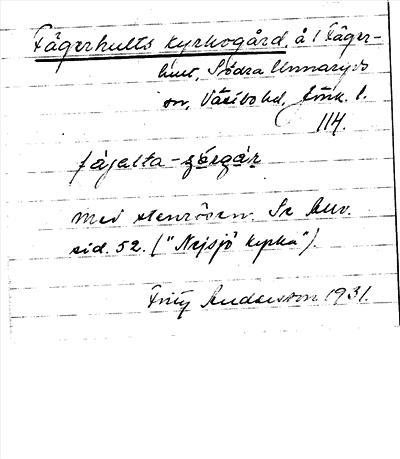 Fägerhults kyrkogård, å l Fäger-
hult, Södra Unnaryds
sn, Västbo hd, Jönk. l.
114.
fǻjalta-
med stenrösen. Se
sid. 52. ("Nejsjö kyrka").
Fritz Andersson 1931.